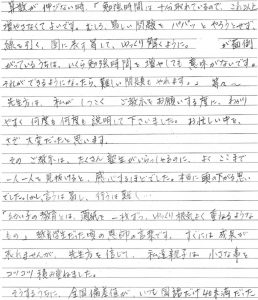 算数が伸びない時、「勉強時間は十分取れているので、これ以上
増やさなくてよいです。むしろ、易しい問題を パパッとやろうとせず、
線を引く、図に表す等して、ゆっくり解くように。 が面倒
がっているうちは、いくら勉強時間を増やしても意味がないです。
それができるようになったら、難しい問題をやれます。」等々
先生方は、私がしつこく ご教示をお願いする度に、わかり
やすく何度も何度も説明して下さいました。お忙しい中を、
さぞ大変だったと思います。
そのご教示は、たくさん塾生がいらっしゃるのに、よくここまで
一人一人を見抜けると、感心するほどでした。本当に頭の下がる思い
でした。しかし、言うは易し、行うは難し…
「子どもの教育とは、薄紙を一枚ずつ、ゆっくり根気よく重ねるような
もの」教育実習だった頃の恩師の言葉です。すぐには成果が
表れませんが、先生方を信じて、私達親子は小さな事を
コツコツ積み重ねました。
そうするうちに、全国偏差値が、いつも国語だけ40未満だった